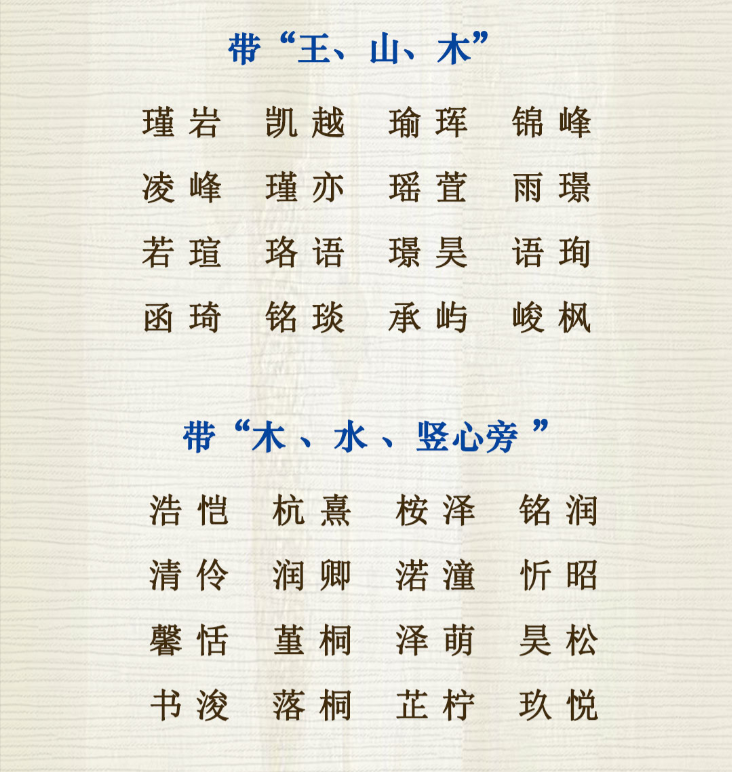 带“王、山、木”
瑾岩 凯越 瑜珲 锦峰
凌峰 瑾亦 瑶萱 雨璟
若瑄 珞语 璟昊 语珣
函琦 铭琰 承屿 峻枫
带“木、水、竖心旁”
浩恺 杭熹 桉泽 铭润
清伶 润卿 渃潼 忻昭
馨恬 堇桐 泽萌 昊松
书浚 落桐 芷柠 玖悦